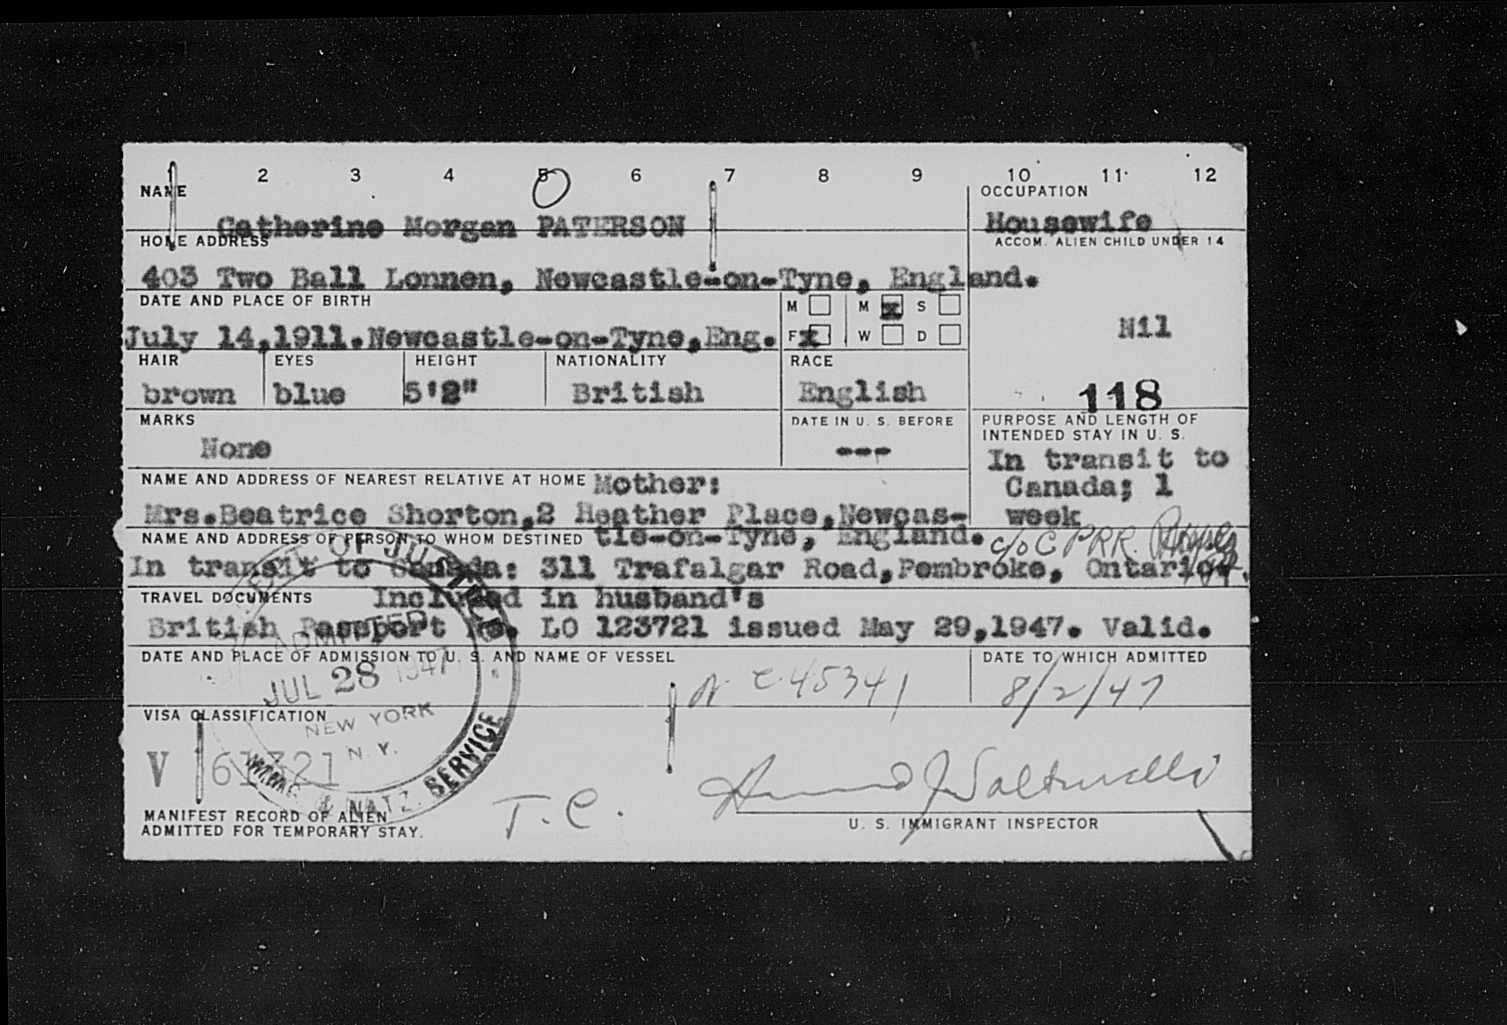 1 2 3 4 5 6 7 8 9 10 11 12
NAME
Catherine Morgan PATERSON
OCCUPATION
Housewife
HOME ADDRESS
403 Two Ball Lonnen, Newcastle-on-Tyne, England.
ACCOM. ALIEN CHILD UNDER 14
Nil
118
DATE AND PLACE OF BIRTH
July 14,1911.Newcastle-on-Tyne,Eng.
M M x S
F x W D
HAIR EYES HEIGHT NATIONALITY RACE
brown blue 5'2" British English
MARKS
None
DATE IN U. S. BEFORE
---
PURPOSE AND LENGTH OF
INTENDED STAY IN U. S.
In transit to
Canada; 1
week
NAME AND ADDRESS OF NEAREST RELATIVE AT HOME Mother:
Mrs.Beatrice Shorton,2 Heather Place,Newcas-
tle-on-Tyne, England.
NAME AND ADDRESS OF PERSON TO WHOM DESTINED
c/o C PRR.
In transit to Canada: 311 Trafalgar Road,Pembroke, Ontario.
TRAVEL DOCUMENTS Included in husband's
British Passport No. LO 123721 issued May 29,1947. Valid.
DATE AND PLACE OF ADMISSION TO U. S. AND NAME OF VESSEL
DATE TO WHICH ADMITTED
8/2/47
45341
DEPT. OF JUSTICE
ADMITTED
JUL 28 1947
NEW YORK
N. Y.
IMMIG. & NATZ. SERVICE
VISA CLASSIFICATION
V 161321
T.C.
MANIFEST RECORD OF ALIEN
ADMITTED FOR TEMPORARY STAY.
U. S. IMMIGRANT INSPECTOR